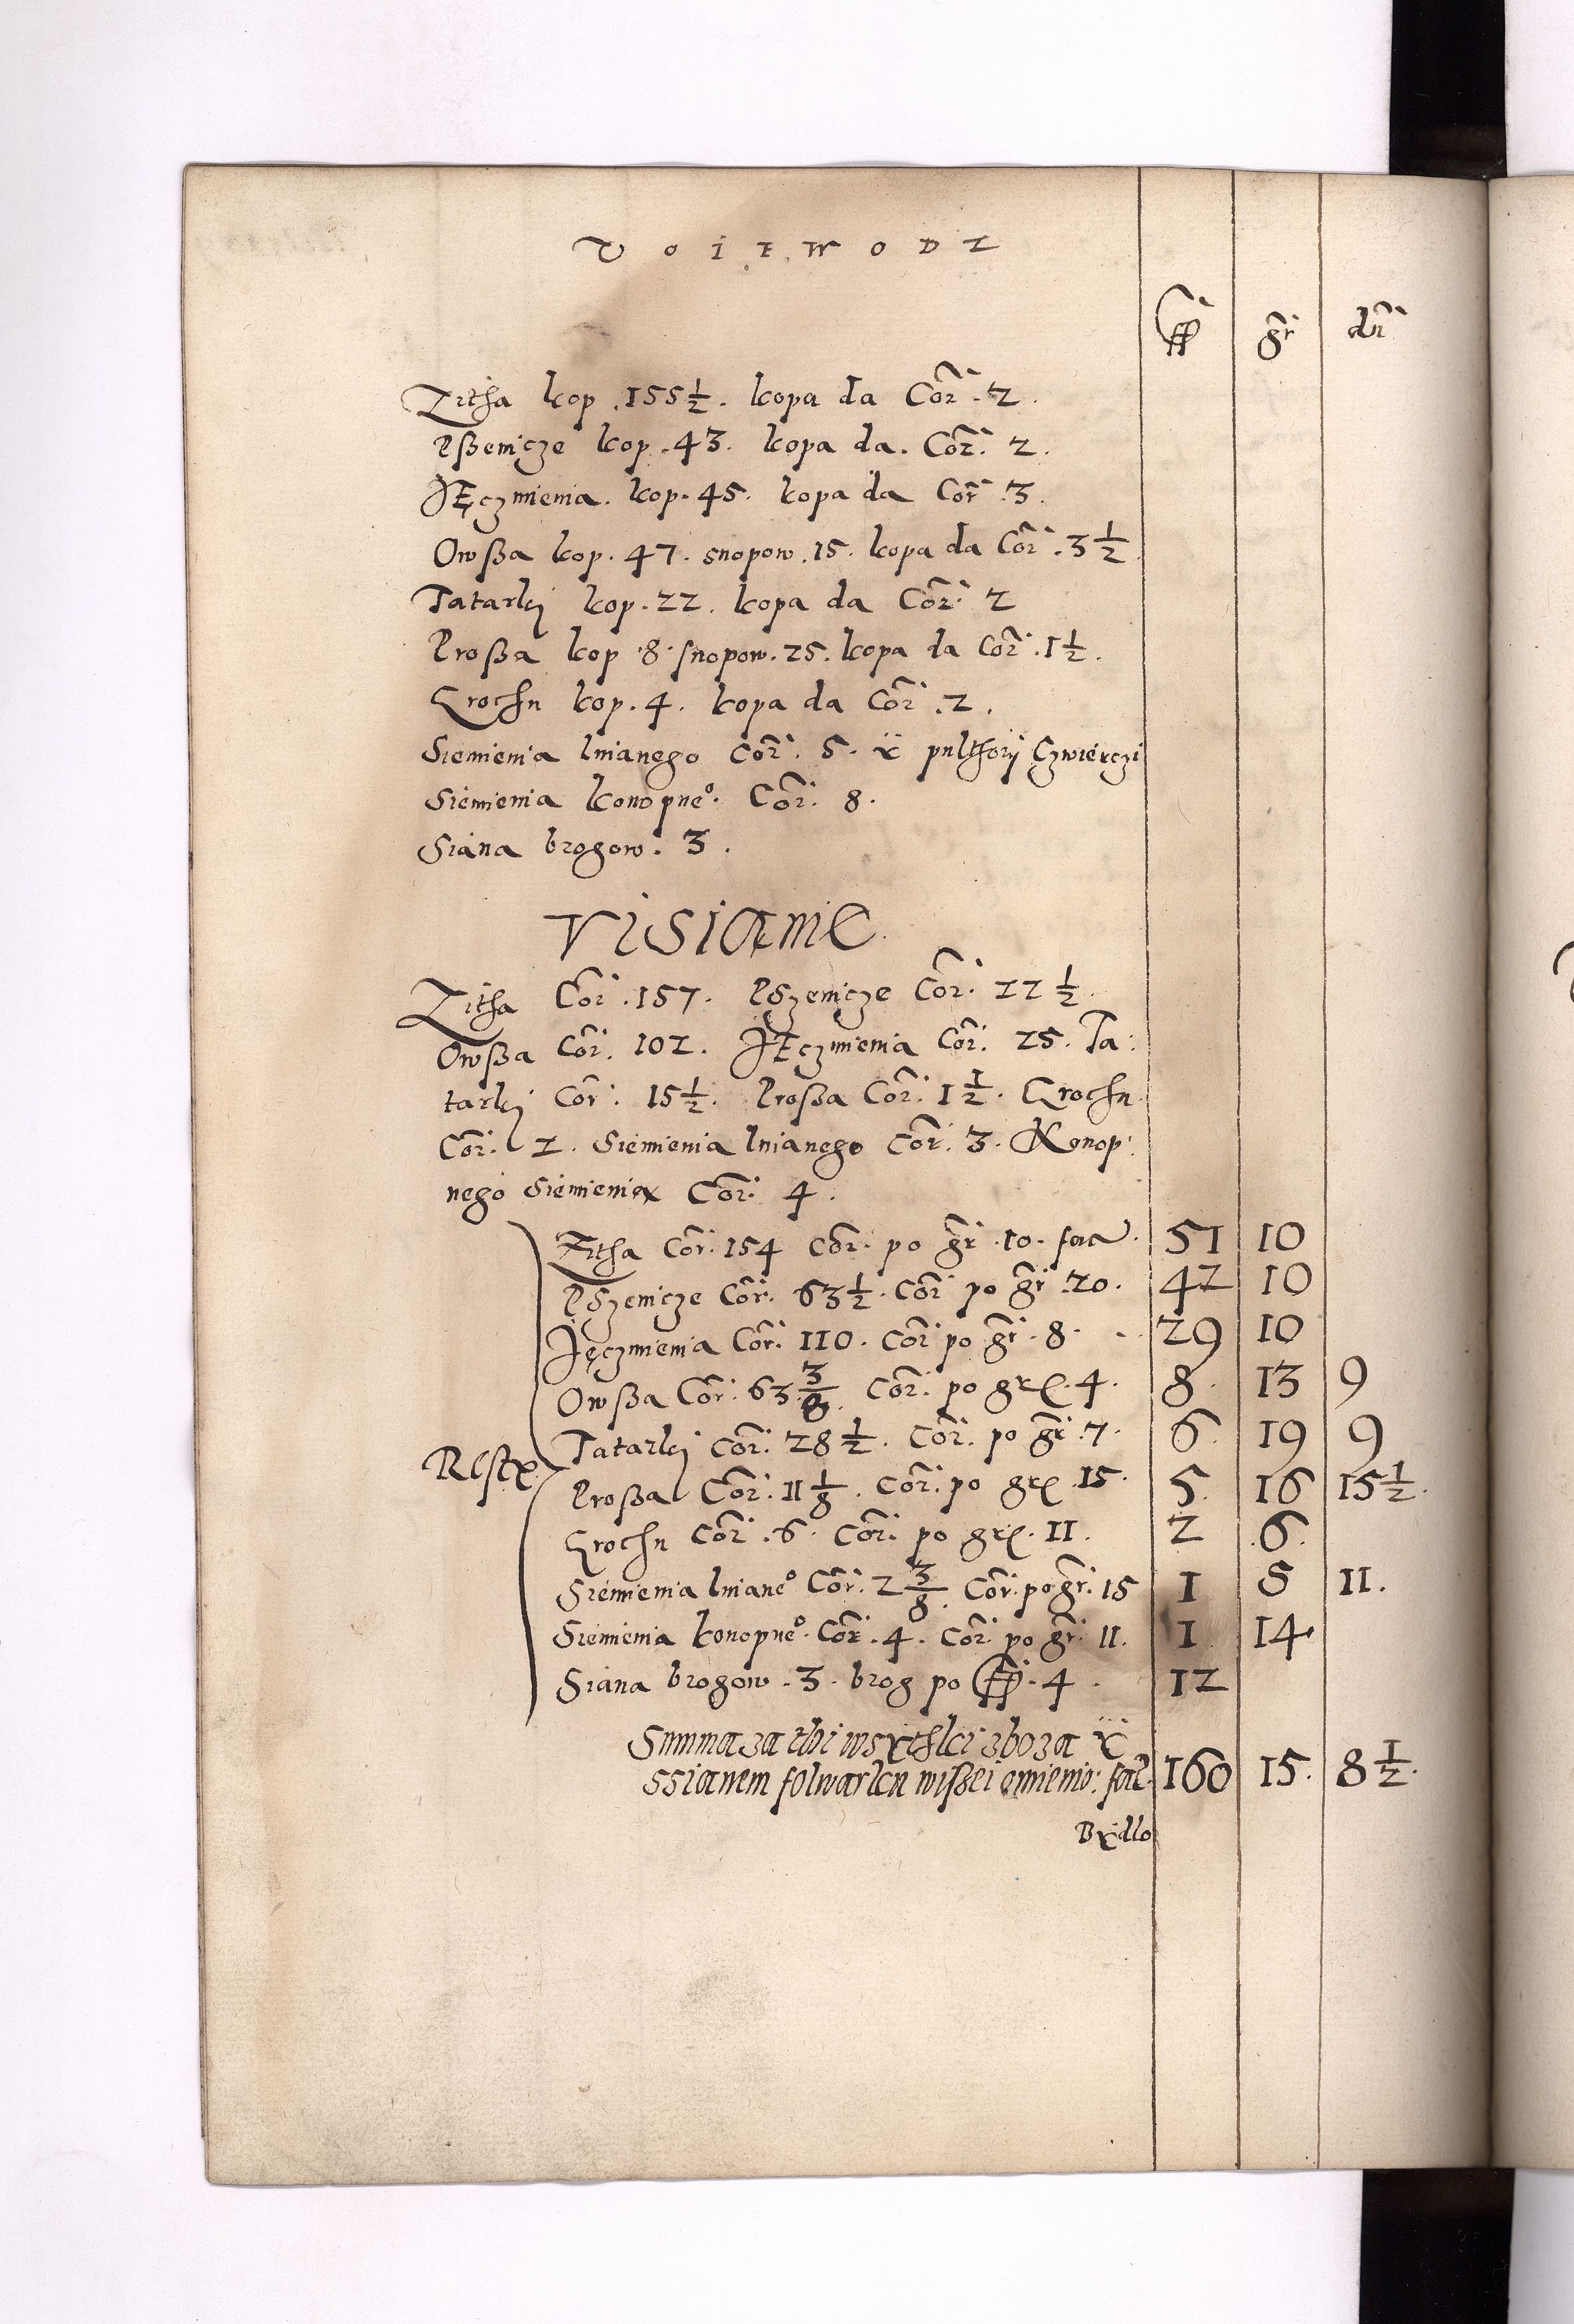 VOIEWODZ
ff gr dn
Zitha kop .155 1/2. kopa da Cor. 2.
Pßenicze kop. 43. kopa da. Cor. 2.
JĘczmienia. kop. 45. kopa da Cor .3.
Owßa kop. 47. snopow .15. kopa da Cor .3 1/2
Tatarki kop. 22. kopa da Cor. 2
Proßa kop .8. snopow. 25. kopa da Cor .1 1/2.
Grochu kop. 4. kopa da Cor .2.
Siemienia lnianego Cor. 5. ÿ pulthorÿ Czwierczi
Siemienia konopneo. Cor. 8.
Siana brogow. 3.
VISIANIE.
Zitha Cor .157. PSzenicze Cor. 22 1/2.
Owßa Cor. 102. JĘczmienia Cor. 25. Ta:
tarki Cor. 15 1/2. Proßa Cor. 1 1/2. Grochu
Cor. 2. Siemienia lnianego Cor. 3. Konop:
nego Siemienia Cor. 4.
Zitha Cor. 154 Cor. po gr .10. fat. 51 10
PSzenicze Cor. 63 1/2. Cor po gr .20. 42 10
Jęczmienia Cor. 110. Cor po gr. 8. 29 10
Owßa Cor. 63 3/8. Cor. po gr. 4. 8. 13 9
Tatarki Cor. 28 1/2. Cor. po gr .7. 6. 19 9
Resta
Proßa Cor. 11 1/8. Cor. po gr. 15. 5. 16 15 1/2.
Grochu Cor .6. Cor. po gr. 11. 2 6.
Siemienia lnianeo Cor. 2 3/8. Cor. po gr. 15 1 5 11.
Siemienia konopneo. Cor .4. Cor. po gr. 11. 1. 14.
Siana brogow. 3. brog po ff. 4. 12
Summa za thi wsythki zboza ÿ
ssianem folwarku wißei omienio: fat. 160 15. 8 1/2.
Bydlo